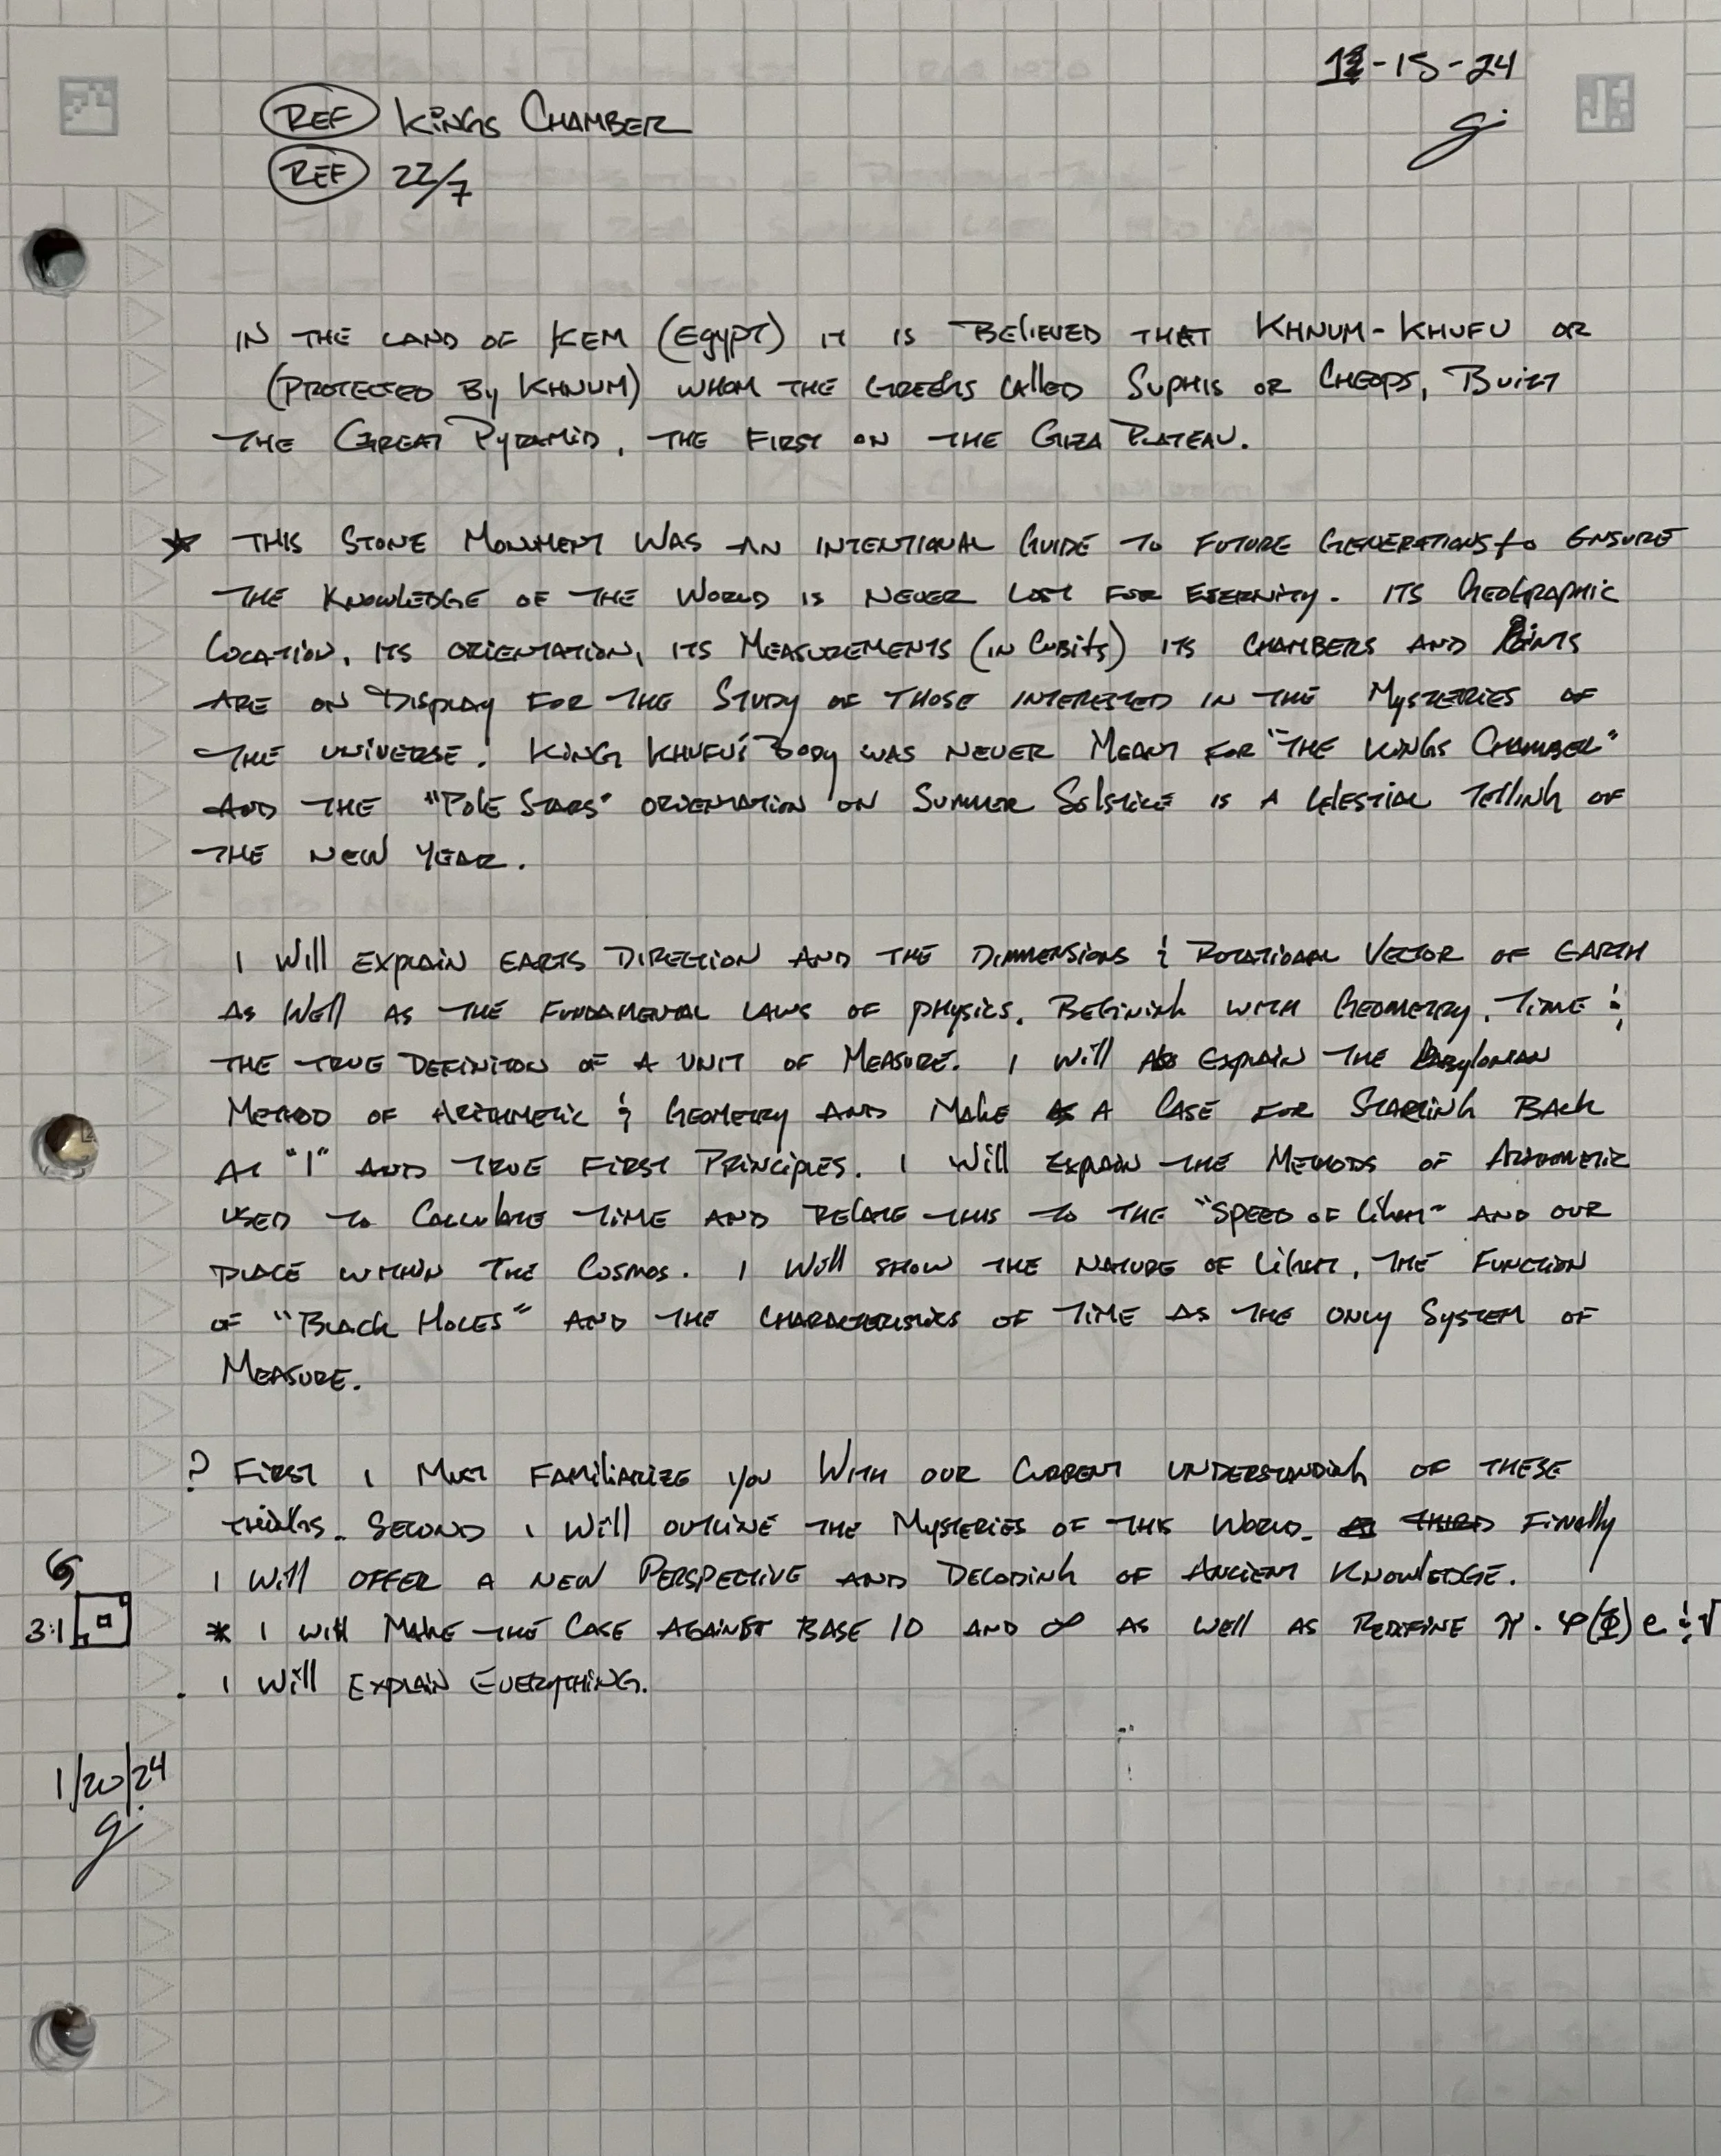 -15-24
REF KINGS CHAMBER
REF 22/7
IN THE LAND OF KEM (EGYPT) IT IS BELIEVED THAT KHNUM-KHUFU OR
(PROTECTED BY KHNUM) WHOM THE GREEKS CALLED SUPHIS OR CHEOPS, BUILT
THE GREAT PYRAMID, THE FIRST ON THE GIZA PLATEAU.
★ THIS STONE MONUMENT WAS AN INTENTIONAL GUIDE TO FUTURE GENERATIONS to ENSURE
THE KNOWLEDGE OF THE WORLD IS NEVER LOST FOR ETERNITY. ITS GEOGRAPHIC
LOCATION, ITS ORIENTATION, ITS MEASUREMENTS (IN CUBITS) ITS CHAMBERS AND
ARE ON DISPLAY FOR THE STUDY OF THOSE INTERESTED IN THE MYSTERIES OF
THE UNIVERSE. KING KHUFU'S BODY WAS NEVER MEANT FOR "THE KINGS CHAMBER"
AND THE "POLE STARS" ORIENTATION ON SUMMER SOLSTICE IS A CELESTIAL TELLING OF
THE NEW YEAR.
I WILL EXPLAIN EARTS DIRECTION AND THE DIMMENSIONS & ROTATIONAL VECTOR OF EARTH
AS WELL AS THE FUNDAMENTAL LAWS OF PHYSICS. BEGINING WITH GEOMETRY, TIME &
THE TRUE DEFINITON OF A UNIT OF MEASURE. I WILL ALSO EXPLAIN THE BABYLONIAN
METHOD OF ARITHMETIC & GEOMETRY AND MAKE A CASE FOR STARTING BACK
AT "1" AND TRUE FIRST PRINCIPLES. I WILL EXPLAIN THE METHODS OF ARITHMETIC
USED TO CALCULATE TIME AND RELATE THIS TO THE "SPEED OF LIGHT" AND OUR
PLACE WITHIN THE COSMOS. I WILL SHOW THE NATURE OF LIGHT, THE FUNCTION
OF "BLACK HOLES" AND THE CHARACTERISTICS OF TIME AS THE ONLY SYSTEM OF
MEASURE.
? FIRST I MUST FAMILIARIZE YOU WITH OUR CURRENT UNDERSTANDING OF THESE
THINGS. SECOND I WILL OUTLINE THE MYSTERIES OF THIS WORLD. THIRD FINALLY
I WILL OFFER A NEW PERSPECTIVE AND DECODING OF ANCIENT KNOWLEDGE.
3:1
* I WILL MAKE THE CASE AGAINST BASE 10 AND ∞ AS WELL AS REDEFINE π. φ(Φ) e & √
. I WILL EXPLAIN EVERYTHING.
1/20/24